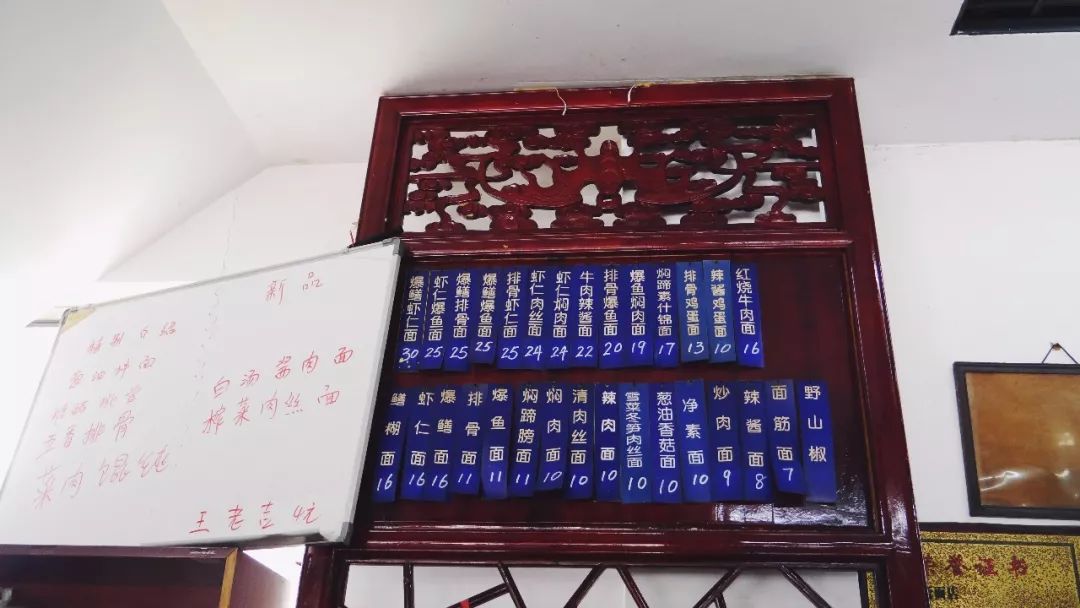 新品
特别介绍
葱油拌面
五香排骨
菜肉馄饨
白汤酱肉面
榨菜肉丝面
王老吉4元
爆鳝虾仁面 30
虾仁爆鱼面 25
爆鳝排骨面 25
爆鳝 面 25
排骨虾仁面 25
虾仁肉丝面 24
虾仁焖肉面 24
牛肉辣酱面 22
排骨爆鱼面 20
爆鱼焖肉面 19
焖蹄素什锦面 17
排骨鸡蛋面 13
辣酱鸡蛋面 10
红烧牛肉面 16
鳝糊面 16
虾仁面 16
爆鳝面 16
排骨面 11
爆鱼面 11
焖蹄膀面 11
焖肉面 10
清肉丝面 10
辣肉面 10
雪菜冬笋肉丝面 10
葱油香菇面 10
净素面 10
炒肉面 9
辣酱面 8
面筋面 7
野山椒
证书